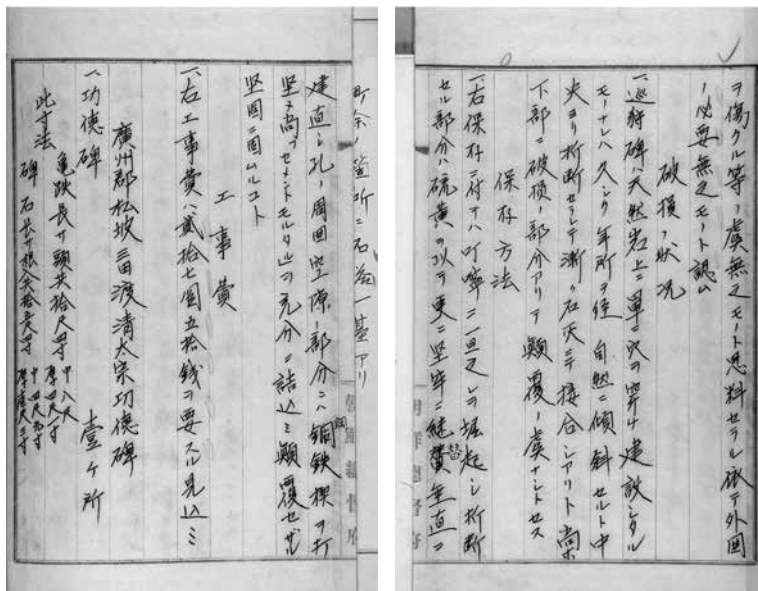 ヲ傷クル等ノ虞無之モノト思料セラル依テ外囲
ノ必要無之モノト認ム
破損ノ状况
一、巡狩碑ハ天然岩上ニ單ニ穴ヲ穿ケ建設シタル
モノナレハ久シク年所ヲ経自然ニ傾斜セルト中
央ヨリ折断セラレテ漸ク石灰ニテ接合シアリト尚ホ
下部ニ破損ノ部分アリテ顛覆ノ虞ナシトセス
保存方法
一、右保存ニ付テハ叮嚀ニ一旦之レヲ堀起シ折断
セル部分ハ硫黄ヲ以テ更ニ堅牢ニ継替垂直ニ
朝鮮總督府
町余ノ箇所ニ石 一基アリ
建直シ孔ノ周囲空隙ノ部分ニハ銅鉄楔ヲ打
堅メ尚ブセメントモルタルヲ充分ニ詰込ミ顛覆セザル
堅固ニ固ムルコト
工事費
一、右工事費ハ貳拾七圓五拾銭ヲ要スル見込ミ
廣州郡松坡三田渡清太宗功德碑
一、功德碑 壹ヶ所
此寸法 亀趺長サ頭共拾尺四寸 巾八尺 厚四尺一寸
碑石長サ根入共拾 尺四寸 巾四尺九寸 厚 尺三寸
朝鮮總督府